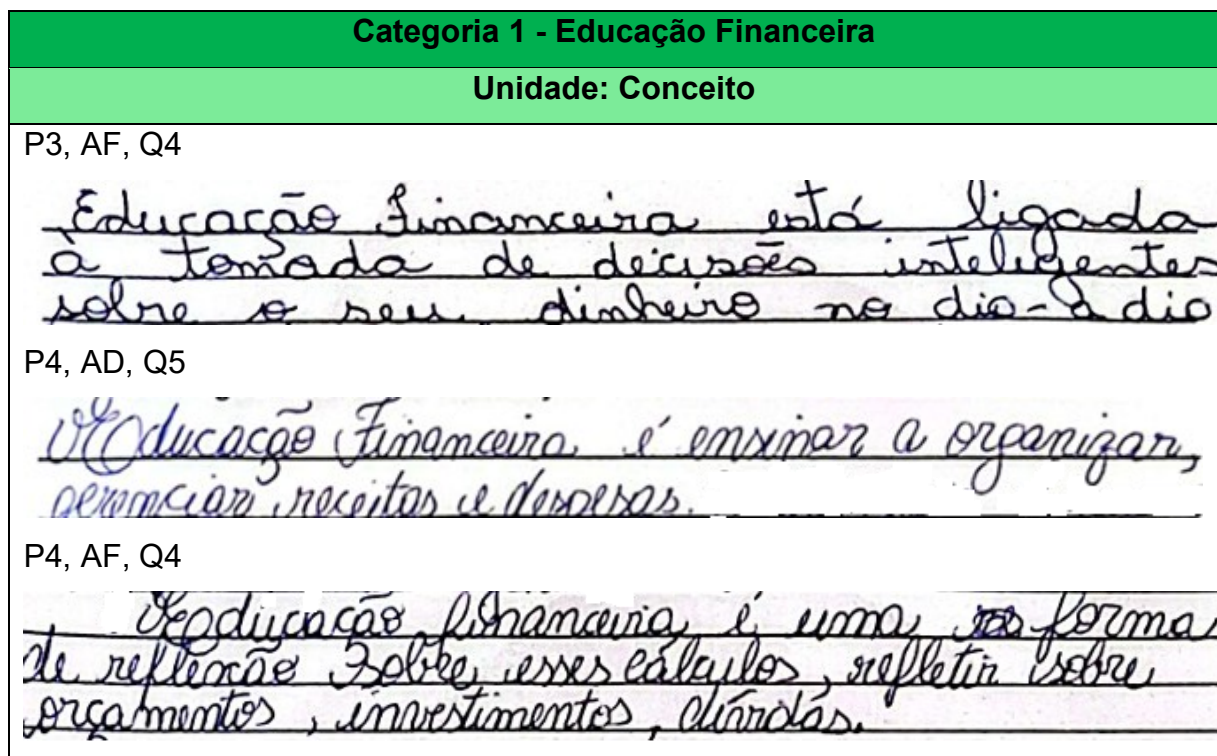 Categoria 1 - Educação Financeira
Unidade: Conceito
P3, AF, Q4
Educação Financeira está ligada
à tomada de decisões inteligentes
sobre o seu dinheiro no dia-à dia
P4, AD, Q5
Educação Financeira é ensinar a organizar,
gerenciar receitas e despesas.
P4, AF, Q4
Educação financeira é uma forma
de reflexão sobre esses cálculos, refletir sobre
orçamentos, investimentos,